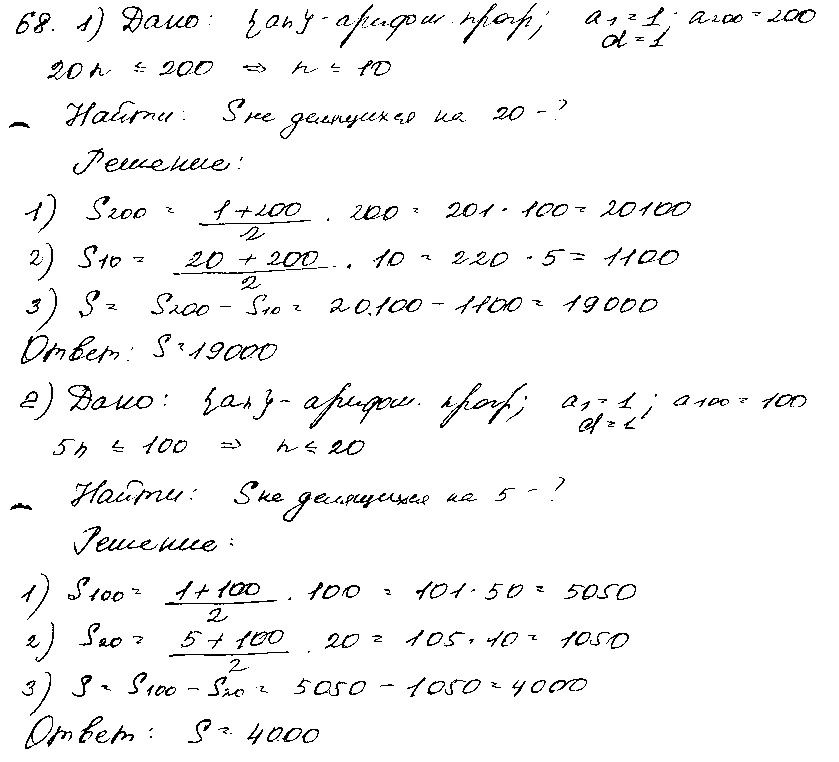 68. 1) Дано: {an} - арифм. прогр; a₁ = 1; a₂₀₀ = 200
d = 1
20n ≤ 200 ⇒ n ≤ 10
Найти: S не делящихся на 20 - ?
Решение:
1) S₂₀₀ = (1+200)/2 · 200 = 201 · 100 = 20100
2) S₁₀ = (20 + 200)/2 · 10 = 220 · 5 = 1100
3) S = S₂₀₀ - S₁₀ = 20.100 - 1100 = 19000
Ответ: S = 19000
2) Дано: {an} - арифм. прогр; a₁ = 1; a₁₀₀ = 100
d = 1
5n ≤ 100 ⇒ n ≤ 20
Найти: S не делящихся на 5 - ?
Решение:
1) S₁₀₀ = (1+100)/2 · 100 = 101 · 50 = 5050
2) S₂₀ = (5 + 100)/2 · 20 = 105 · 10 = 1050
3) S = S₁₀₀ - S₂₀ = 5050 - 1050 = 4000
Ответ: S = 4000